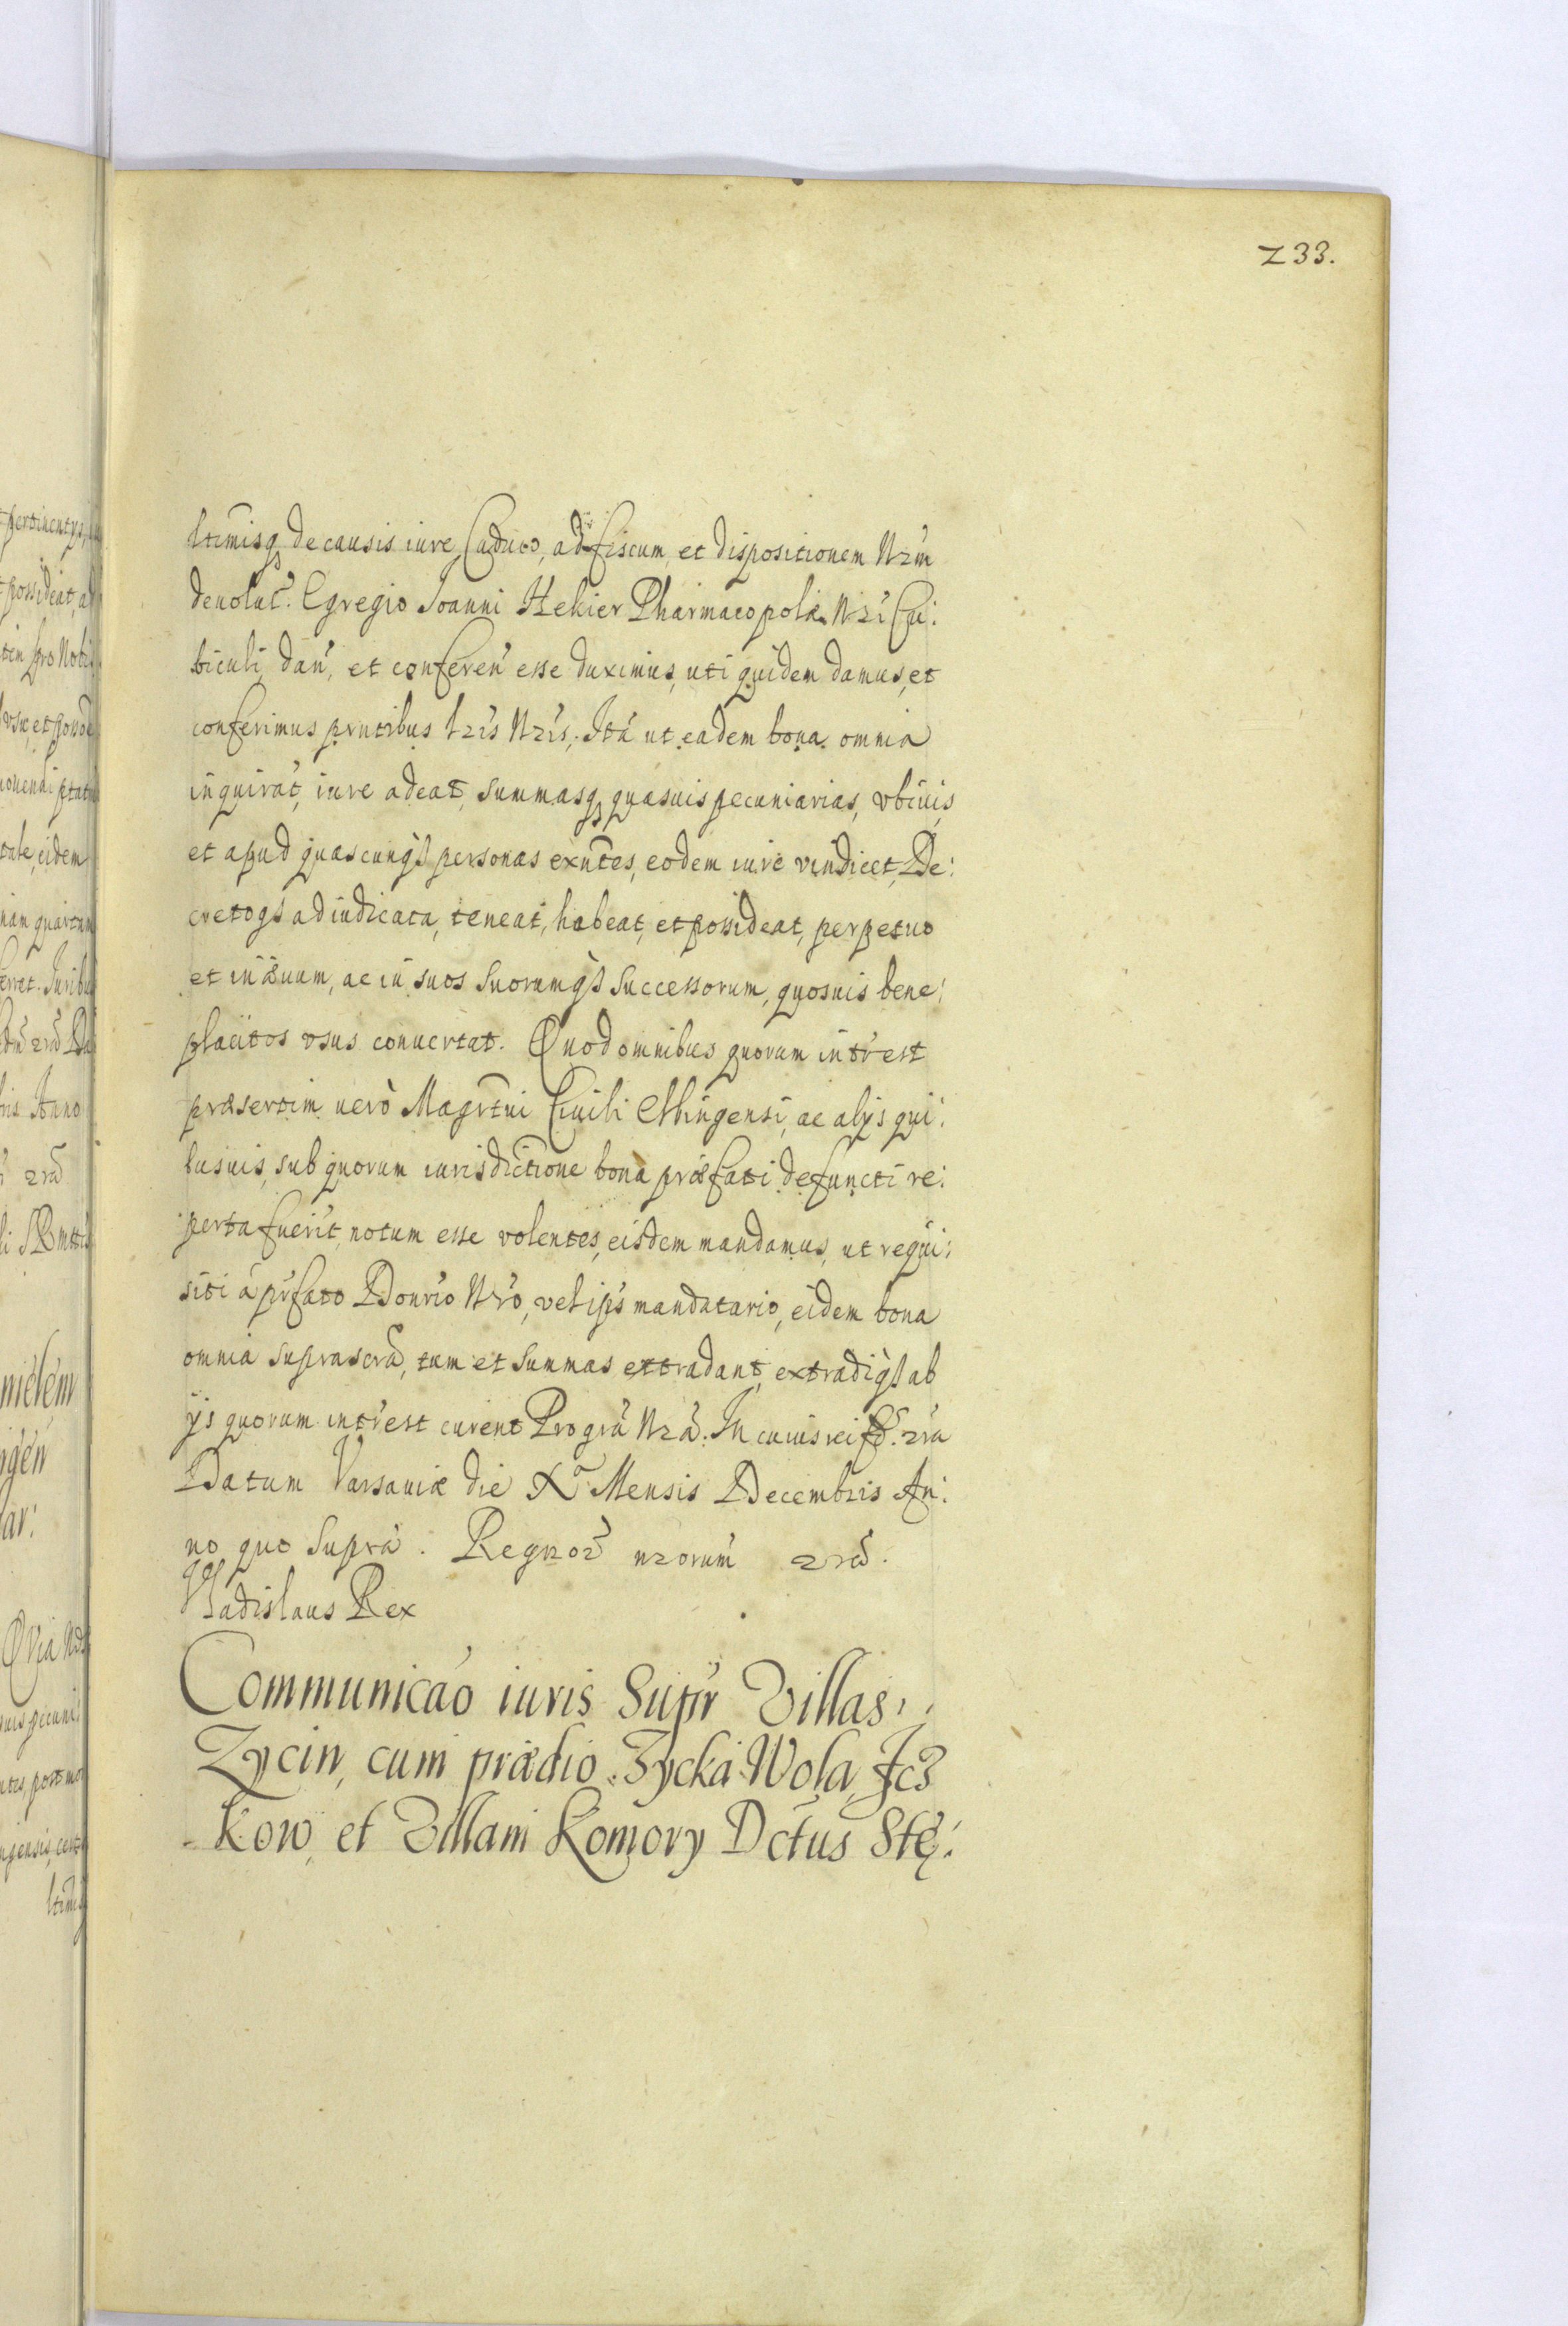 233.
ltimisq de causis iure Caduco, ad fiscum, et dispositionem Nr̃m
deuolut. Egregio Joanni Hekier Pharmacopolæ Nr̃i Cu:
biculi, dan̄, et conferen̄ esse duximus, uti quidem damus, et
conferimus pr̃ntibus lr̃is Nr̃is, Ita ut eadem bona omnia
inquirat, iure adeat, summasq quasuis pecuniarias, vbiuis,
et apud quascunq personas exñtes, eodem iure vindicet, De:
cretoq adiudicata, teneat, habeat, et possideat, perpetuo
et in æuum, ac in suos suorumq successorum, quosuis bene:
placitos vsus conuertat. Quod omnibus quorum intr̃est
præsertim uerò Magrt̃ui Ciuili Elbingensi, ac alijs qui:
busuis, sub quorum iurisdictione bona præfati defuncti re:
perta fuerit, notum esse volentes, eisdem mandamus, ut requi:
siti á pr̃fato Donr̃io Nr̃o, vel ips̃ mandatario, eidem bona
omnia suprascr̃a, tum et summas extradant, extradiq ab
ijs quorum intr̃est curent Pro gr̃a Nr̃a. In cuius rei fd̃. 2r̃a
Datum Varsauiæ die X Mensis Decembris An:
no quo supra. Regnor̃ nr̃orum 2r̃a.
Vladislaus Rex
Communicaõ iuris Supr̃ Villas,
Zycin, cum prædio Zycka Wola, Jcz
kow, et Villam Komory Dctus Stę: